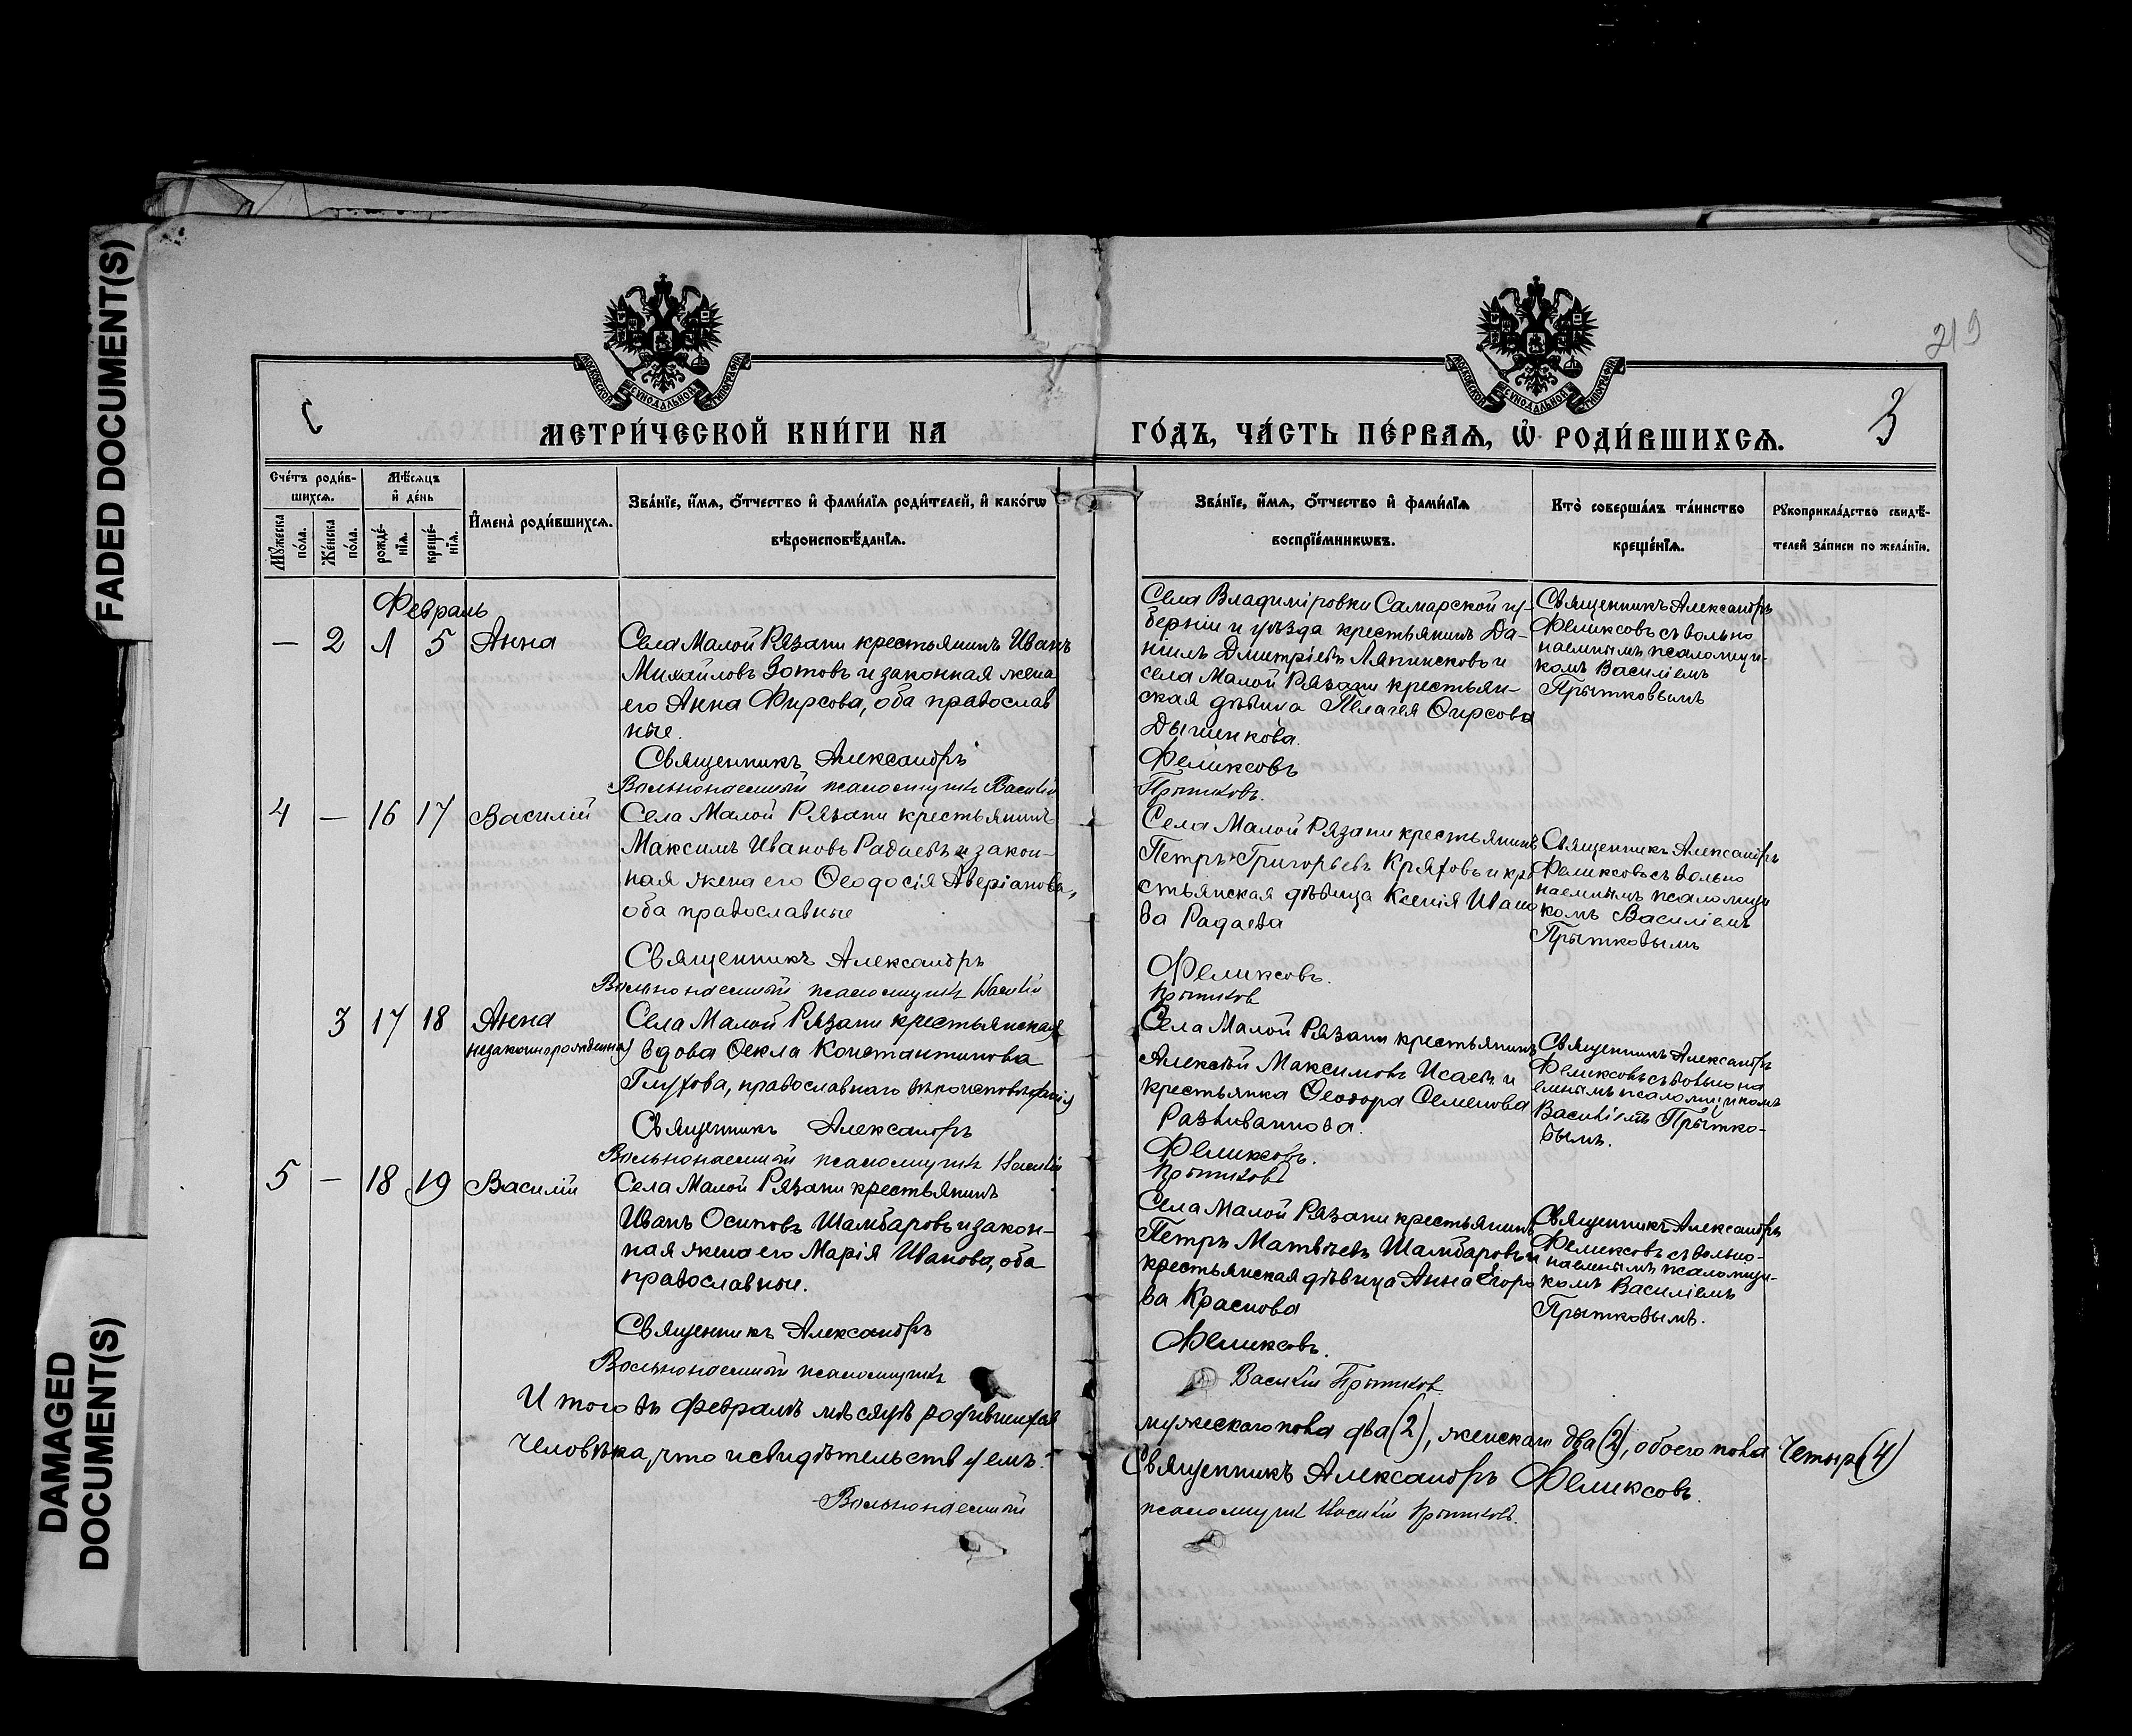 FADED DOCUMENT(S)
DAMAGED
DOCUMENT(S)
МОСКОВСКОЙ СѴНОДАЛЬНОЙ ТИПОГРАФІИ
МОСКОВСКОЙ СѴНОДАЛЬНОЙ ТИПОГРАФІИ
219
3
МЕТРИ́ЧЕСКОЙ КНИ́ГИ НА
ГО́ДЪ, ЧА́СТЬ ПЕ́РВАѦ, Ѡ҆ РОДИ́ВШИХСѦ.
Сче́тъ роди́в-
шихсѧ.
Мѣ́сѧцъ
и҆ де́нь
Мꙋ́жеска
по́ла.
Же́нска
по́ла.
рожде́-
нїѧ.
креще́-
нїѧ.
И҆мена̀ роди́вшихсѧ.
Зва́нїе, и҆́мѧ, ѻ҆́тчество и҆ фами́лїѧ роди́телей, и҆ како́гѡ
вѣроисповѣ́данїѧ.
Зва́нїе, и҆́мѧ, ѻ҆́тчество и҆ фами́лїѧ
воспрїе́мникѡвъ.
Кто̀ соверша́лъ та́инство
креще́нїѧ.
Рꙋкоприкла́дство свидѣ́-
телей за́писи по жела́нїю.
Февраль
— 2 1 5 Анна
Села Малой Рязани крестьянинъ Иванъ
Михайловъ Зотовъ и законная жена
его Анна Фирсова, оба православ
ные.
Священникъ Александръ
Вольнонаемный псаломщикъ Василій
Села Владиміровки Самарской гу-
берніи и уѣзда крестьянинъ Да-
ніилъ Дмитріевъ Ляпинсковъ и
села Малой Рязани крестьян-
ская дѣвица Пелагея Ѳирсова
Дычинкова.
Феликсовъ
Прытковъ.
Священникъ Александръ
Феликсовъ съ вольно
наемнымъ псаломщи-
комъ Василіемъ
Прытковымъ
4 — 16 17 Василій
Села Малой Рязани крестьянинъ
Максимъ Ивановъ Радаевъ и закон-
ная жена его Ѳеодосія Аверіанова,
оба православные
Священникъ Александръ
Вольнонаемный псаломщикъ Василій
Села Малой Рязани крестьянинъ
Петръ Григорьевъ Кряховъ и кре
стьянская дѣвица Ксенія Ивано
ва Радаева
Феликсовъ.
Прытков
Священникъ Александръ
Феликсовъ съ вольно
наемнымъ псаломщи
комъ Василіемъ
Прытковымъ
3 17 18 Анна
незаконнорожденная
Села Малой Рязани крестьянская
вдова Ѳекла Константинова
Глухова, православнаго вѣроисповѣданія
Священникъ Александръ
Вольнонаемный псаломщикъ Василій
Села Малой Рязани крестьянинъ
Алексѣй Максимовъ Исаевъ и
крестьянка Ѳеодора Семенова
Разживаннова.
Феликсовъ.
Прытковъ
Священникъ Александръ
Феликсовъ съ вольнона
емнымъ псаломщикомъ
Василіемъ Прытко-
вымъ.
5 — 18 19 Василій
Села Малой Рязани крестьянинъ
Иванъ Осиповъ Шамбаровъ и закон-
ная жена его Марія Иванова, оба
православные.
Священникъ Александръ
Вольнонаемный псаломщикъ
Села Малой Рязани крестьянинъ
Петръ Матвѣевъ Шамбаровъ и
крестьянская дѣвица Анна Егоро
ва Краснова
Феликсовъ.
Василій Прытков
Священникъ Александръ
Феликсовъ съ вольно-
наемнымъ псаломщи-
комъ Василіемъ
Прытковымъ.
И того въ февралѣ мѣсяцѣ родившихся мужескаго пола два (2), женскаго два (2), обоего пола четыре (4)
человѣка, что и свидѣтельствуемъ: Священникъ Александръ Феликсовъ.
Вольнонаемный псаломщикъ Василій Прытковъ.